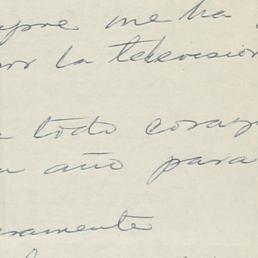 me ha
por la television
todo coraz
año para
ramente